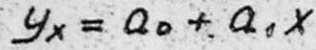 yₓ = a₀ + a₁ x